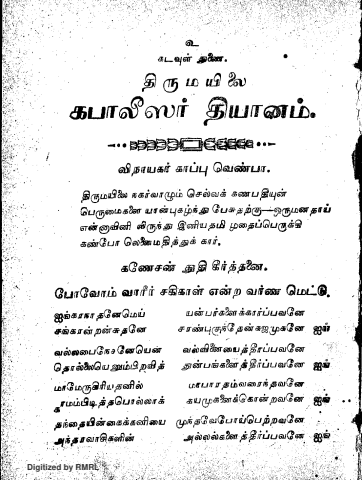 உ
கடவுள் துணை.
திருமயிலை
கபாலீஸர் தியானம்.
விநாயகர் காப்பு வெண்பா.
திருமயிலை நகர்வாழும் செல்வக் கணபதியுன்
பெருமைகளை யான்புகழ்ந்து பேசுதற்கு—ஒருமனதாய்
என்னாவினி லிருந்து இனியதமி முதைப்பெருக்கி
கண்போ லெனமதித்துக் கார்.
கணேசன் துதி கீர்த்தனை.
போவோம் வாரீர் சகிகாள் என்ற வர்ண மெட்டு.
ஐங்கரநாதனேமெய் யன்பர்களைக்கார்ப்பவனே
சங்கரன்றன்சுதனே சரண்புகுந்தேன்கஜமுகனே ஐங்
வல்லபைநேசனேயென் வல்வினையைத்தீர்ப்பவனே
தொல்லையெனும்பிறவித் துன்பங்களைத்தீர்ப்பவனே ஐங்
மாமேருகிரியதனில் மாபாரதம்வரைந்தவனே
காமம்பிடித்தபொல்லாக் கயமுகனைக்கொன்றவனே ஐங்
தந்தையின்கைக்கனியை முந்தவேபோய்பெற்றவனே
அந்தரவாசிகளின் அல்லல்களைத்தீர்ப்பவனே ஐங்
Digitized by RMRL